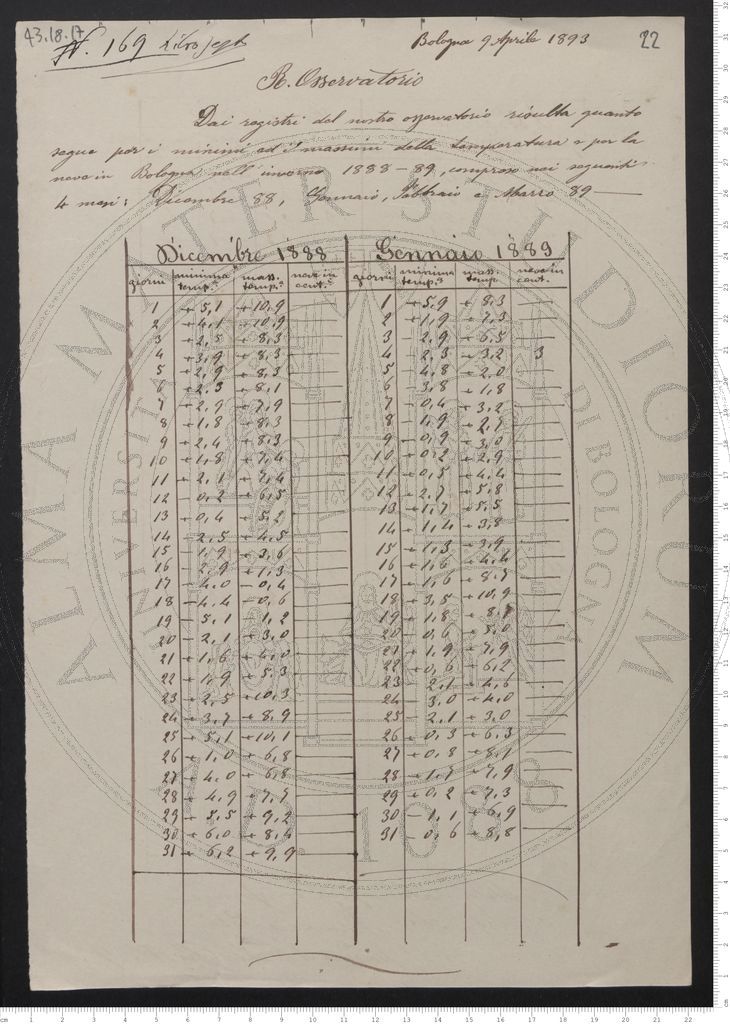 43.18.17
N. 169
Bologna 9 Aprile 1893
22
R. Osservatorio
Dai registri del nostro osservatorio risulta quanto
segue per i minimi ed i massimi della temperatura e per la
neve in Bologna nell'inverno 1888-89, compreso nei seguenti
4 mesi: Dicembre 88, Gennaio, Febbraio e Marzo 89 —
Dicembre 1888 Gennaio 1889
giorni minima temp.ª mass. temp.ª neve in cent. giorni minima temp.ª mass. temp. neve in cent.
1 + 5,1 + 10,9 — 1 + 5,9 + 8,3 —
2 + 4,1 + 10,9 — 2 + 1,9 + 7,3 —
3 + 2,5 + 8,3 — 3 - 2,9 + 6,5 —
4 + 3,9 + 8,3 — 4 - 2,3 + 3,2 3
5 + 2,9 + 8,3 — 5 - 4,8 + 2,0 —
6 + 2,3 + 8,1 — 6 - 3,8 + 1,8 —
7 + 2,9 + 7,9 — 7 - 0,4 + 3,2 —
8 + 1,8 + 8,3 — 8 - 1,9 + 2,7 —
9 + 2,4 + 8,3 — 9 - 0,9 + 3,0 —
10 + 1,8 + 7,4 — 10 - 0,2 + 2,9 —
11 + 2,1 + 7,4 — 11 - 0,5 + 4,4 —
12 - 0,2 + 6,5 — 12 - 2,7 + 5,8 —
13 + 0,4 + 5,2 — 13 - 1,7 + 5,5 —
14 - 2,5 + 4,5 — 14 - 1,4 + 3,8 —
15 - 1,9 + 3,6 — 15 - 1,3 + 3,9 —
16 - 2,9 + 1,3 — 16 - 1,6 + 4,4 —
17 - 4,0 - 0,4 — 17 + 1,6 + 8,7 —
18 - 4,4 - 0,6 — 18 + 3,5 + 10,9 —
19 - 5,1 + 1,2 — 19 + 1,8 + 8,7 —
20 - 2,1 + 3,0 — 20 + 0,6 + 5,0 —
21 + 1,6 + 4,0 — 21 + 1,9 + 7,9 —
22 + 1,9 + 5,3 — 22 + 0,6 + 6,2 —
23 + 2,5 + 10,3 — 23 - 2,1 + 4,6 —
24 + 3,7 + 8,9 — 24 - 3,0 + 4,0 —
25 + 5,1 + 10,1 — 25 - 2,1 + 3,0 —
26 + 1,0 + 6,8 — 26 + 0,3 + 6,3 —
27 + 4,0 + 6,8 — 27 - 0,8 + 8,1 —
28 + 4,9 + 7,7 — 28 - 1,7 + 7,9 —
29 + 5,5 + 9,2 — 29 + 0,2 + 7,3 —
30 + 6,0 + 8,4 — 30 - 1,1 + 6,9 —
31 + 6,2 + 9,9 — 31 - 0,6 + 8,8 —